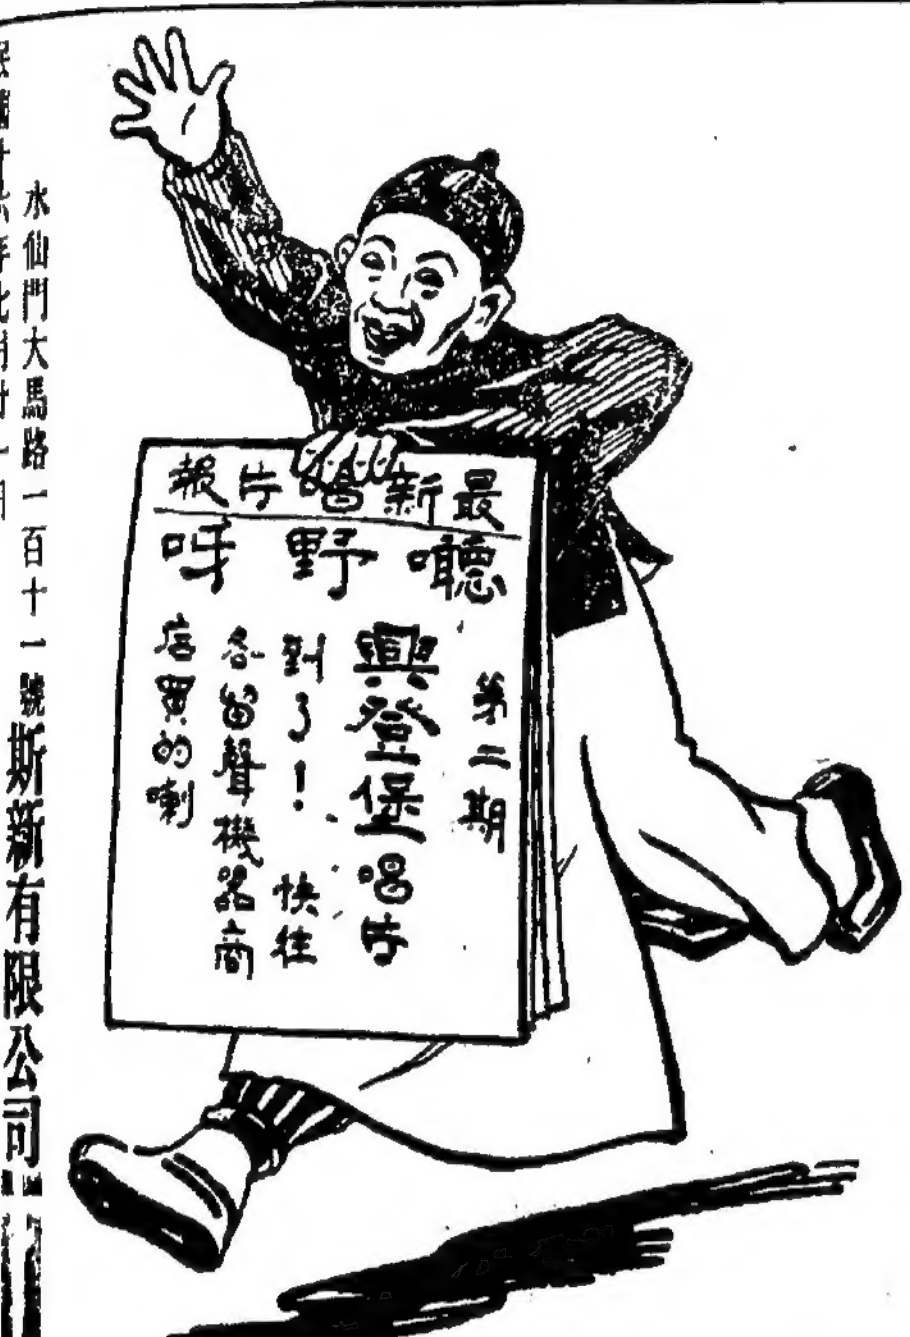 最新唱片報
聽野呀
第二期
興登堡唱片
到了！快往
各留聲機器商
店買的喇
水仙門大馬路一百十一號斯新有限公司